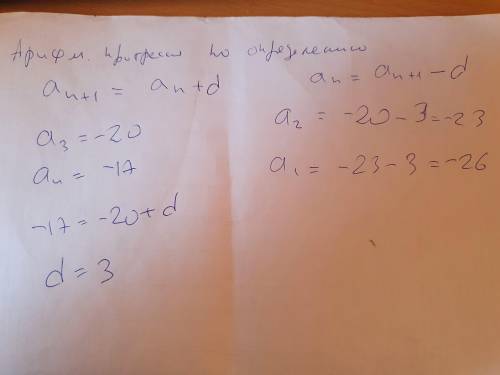 Арифм. прогрессия по определению
aₙ₊₁ = aₙ+d
a₃ = -20
a₄ = -17
-17 = -20+d
d = 3
aₙ = aₙ₊₁ - d
a₂ = -20 - 3 = -23
a₁ = -23 - 3 = -26